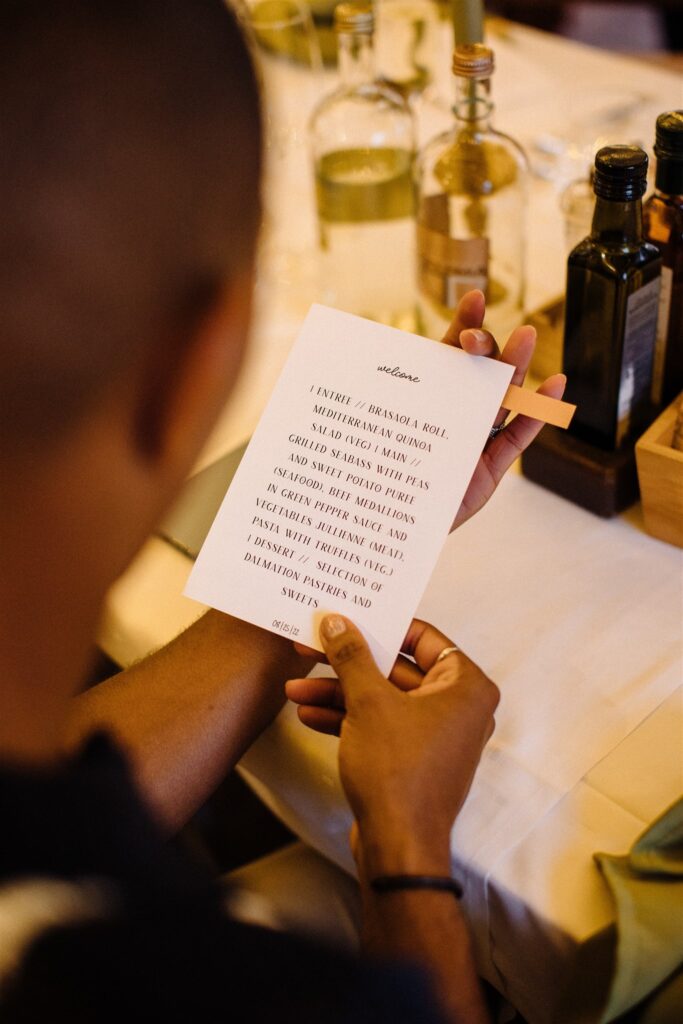 welcome
1 ENTREE // BRASAOLA ROLL,
MEDITERRANEAN QUINOA
SALAD (VEG) 1 MAIN //
GRILLED SEABASS WITH PEAS
AND SWEET POTATO PUREE
(SEAFOOD), BEEF MEDALLIONS
IN GREEN PEPPER SAUCE AND
VEGETABLES JULLIENNE (MEAT),
PASTA WITH TRUFFLES (VEG.)
1 DESSERT // SELECTION OF
DALMATION PASTRIES AND
SWEETS
08/25/22